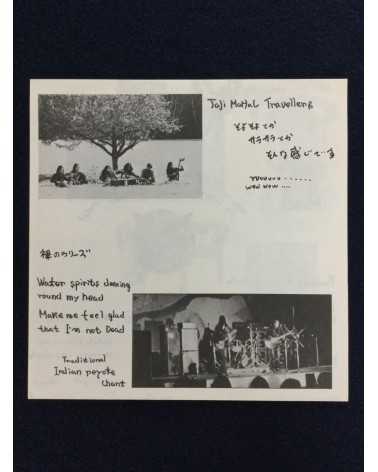 Taji MaHaL Travellers
そよそよとか
サラサラとか
そんな感じです
wow wow ....
裸のラリーズ
Water spirits dancing
round my head
Make me feel glad
that I'm not Dead
Traditional
Indian peyote
chant